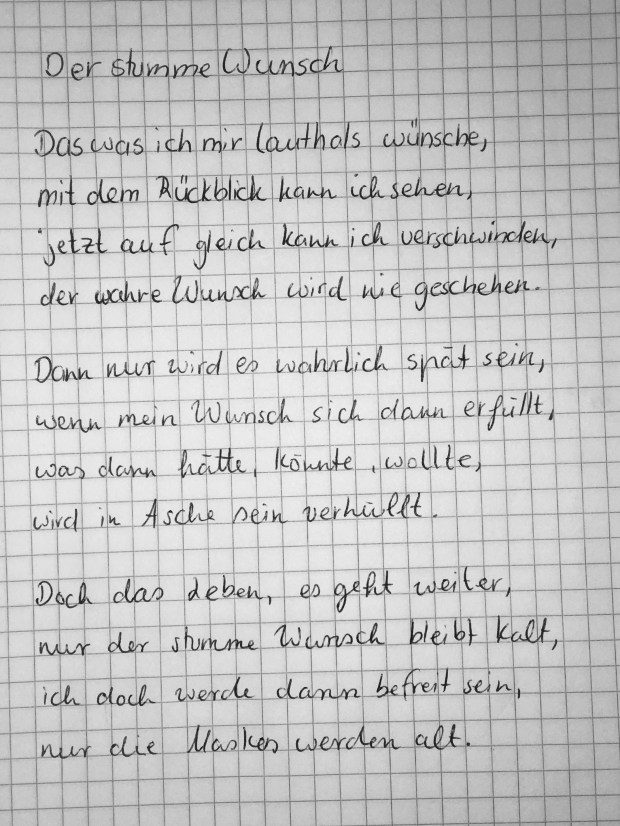 Der stumme Wunsch
Das was ich mir lauthals wünsche,
mit dem Rückblick kann ich sehen,
jetzt auf gleich kann ich verschwinden,
der wahre Wunsch wird nie geschehen.
Dann nur wird es wahrlich spät sein,
wenn mein Wunsch sich dann erfüllt,
was dann hätte, könnte, wollte,
wird in Asche sein verhüllt.
Doch das Leben, es geht weiter,
nur der stumme Wunsch bleibt kalt,
ich doch werde dann befreit sein,
nur die Masken werden alt.